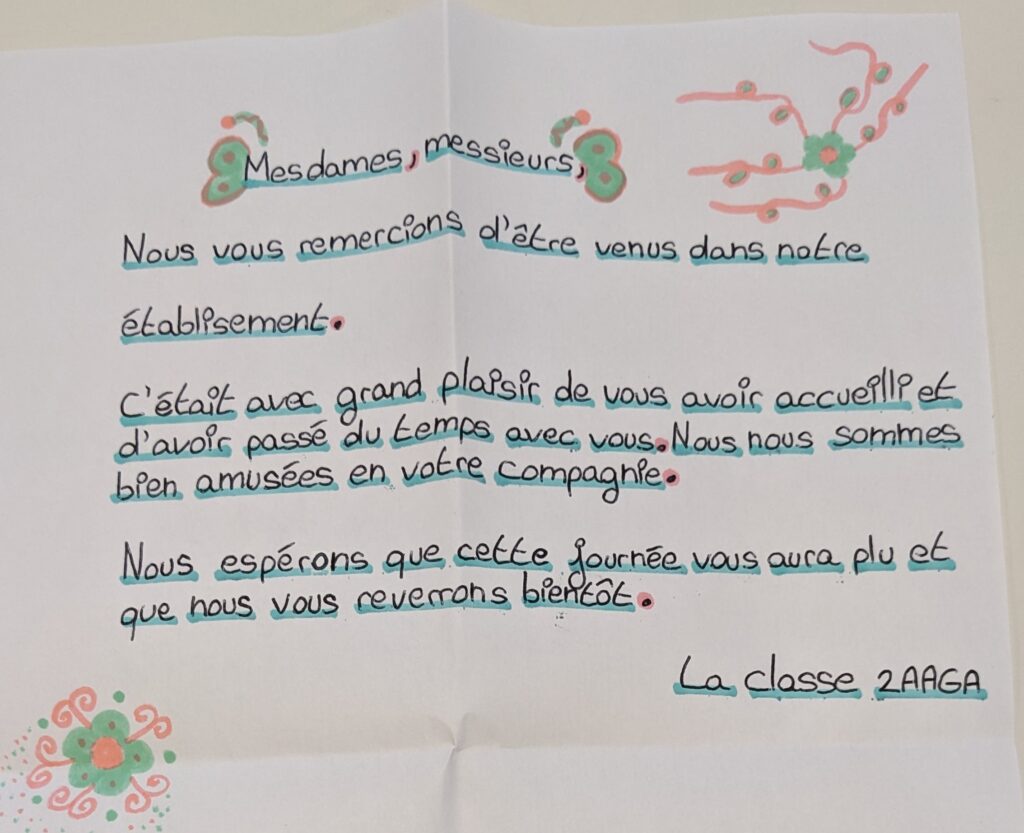 Mesdames, messieurs,
Nous vous remercions d'être venus dans notre
établisement.
C'était avec grand plaisir de vous avoir accueilli et
d'avoir passé du temps avec vous. Nous nous sommes
bien amusées en votre compagnie.
Nous espérons que cette journée vous aura plu et
que nous vous reverrons bientôt.
La classe 2AAGA